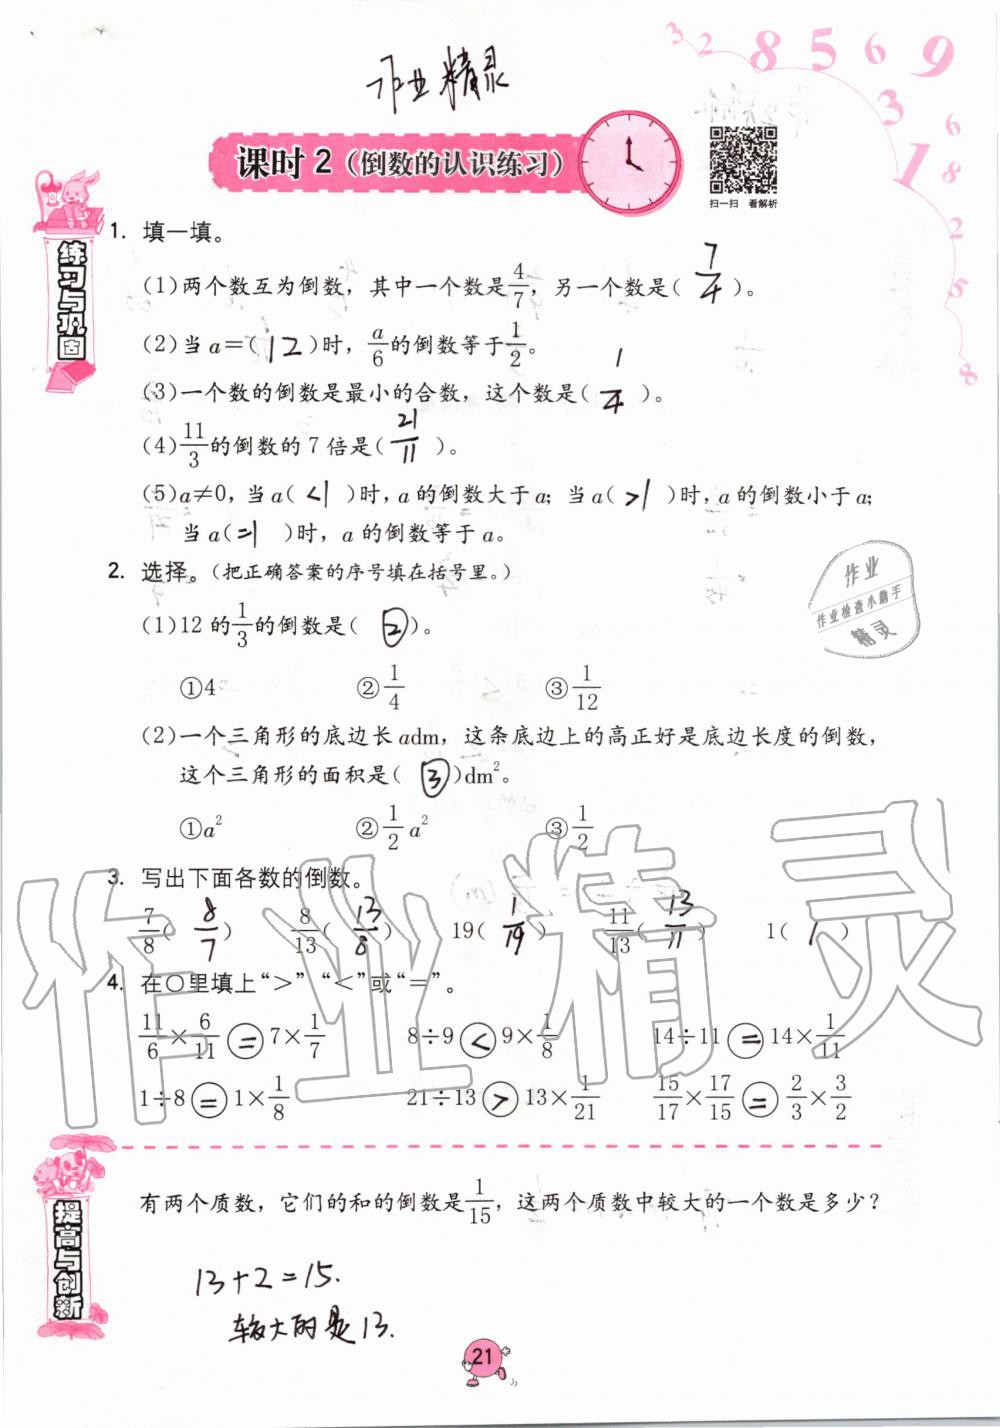 3 2 8 5 6 9
3 6
1 8
2
5
8
作业精灵
课时 2（倒数的认识练习）
扫一扫 看解析
练习与巩固
1. 填一填。
(1)两个数互为倒数，其中一个数是4/7，另一个数是( 7/4 )。
(2)当 a=( 12 )时，a/6的倒数等于1/2。
(3)一个数的倒数是最小的合数，这个数是( 1/4 )。
(4)11/3的倒数的 7 倍是( 21/11 )。
(5)a≠0，当 a( <1 )时，a 的倒数大于 a；当 a( >1 )时，a 的倒数小于 a；
当 a( =1 )时，a 的倒数等于 a。
2. 选择。(把正确答案的序号填在括号里。)
(1)12 的1/3的倒数是( ② )。
①4 ②1/4 ③1/12
(2)一个三角形的底边长 adm，这条底边上的高正好是底边长度的倒数，
这个三角形的面积是( ③ )dm²。
①a² ②1/2 a² ③1/2
作业
作业检查小助手
精灵
3. 写出下面各数的倒数。
7/8( 8/7 ) 8/13( 13/8 ) 19( 1/19 ) 11/13( 13/11 ) 1( 1 )
4. 在○里填上“>”“<”或“=”。
11/6×6/11 = 7×1/7 8÷9 < 9×1/8 14÷11 = 14×1/11
1÷8 = 1×1/8 21÷13 > 13×1/21 15/17×17/15 = 2/3×3/2
作业精灵
提高与创新
有两个质数，它们的和的倒数是1/15，这两个质数中较大的一个数是多少？
13+2=15.
较大的是13.
21